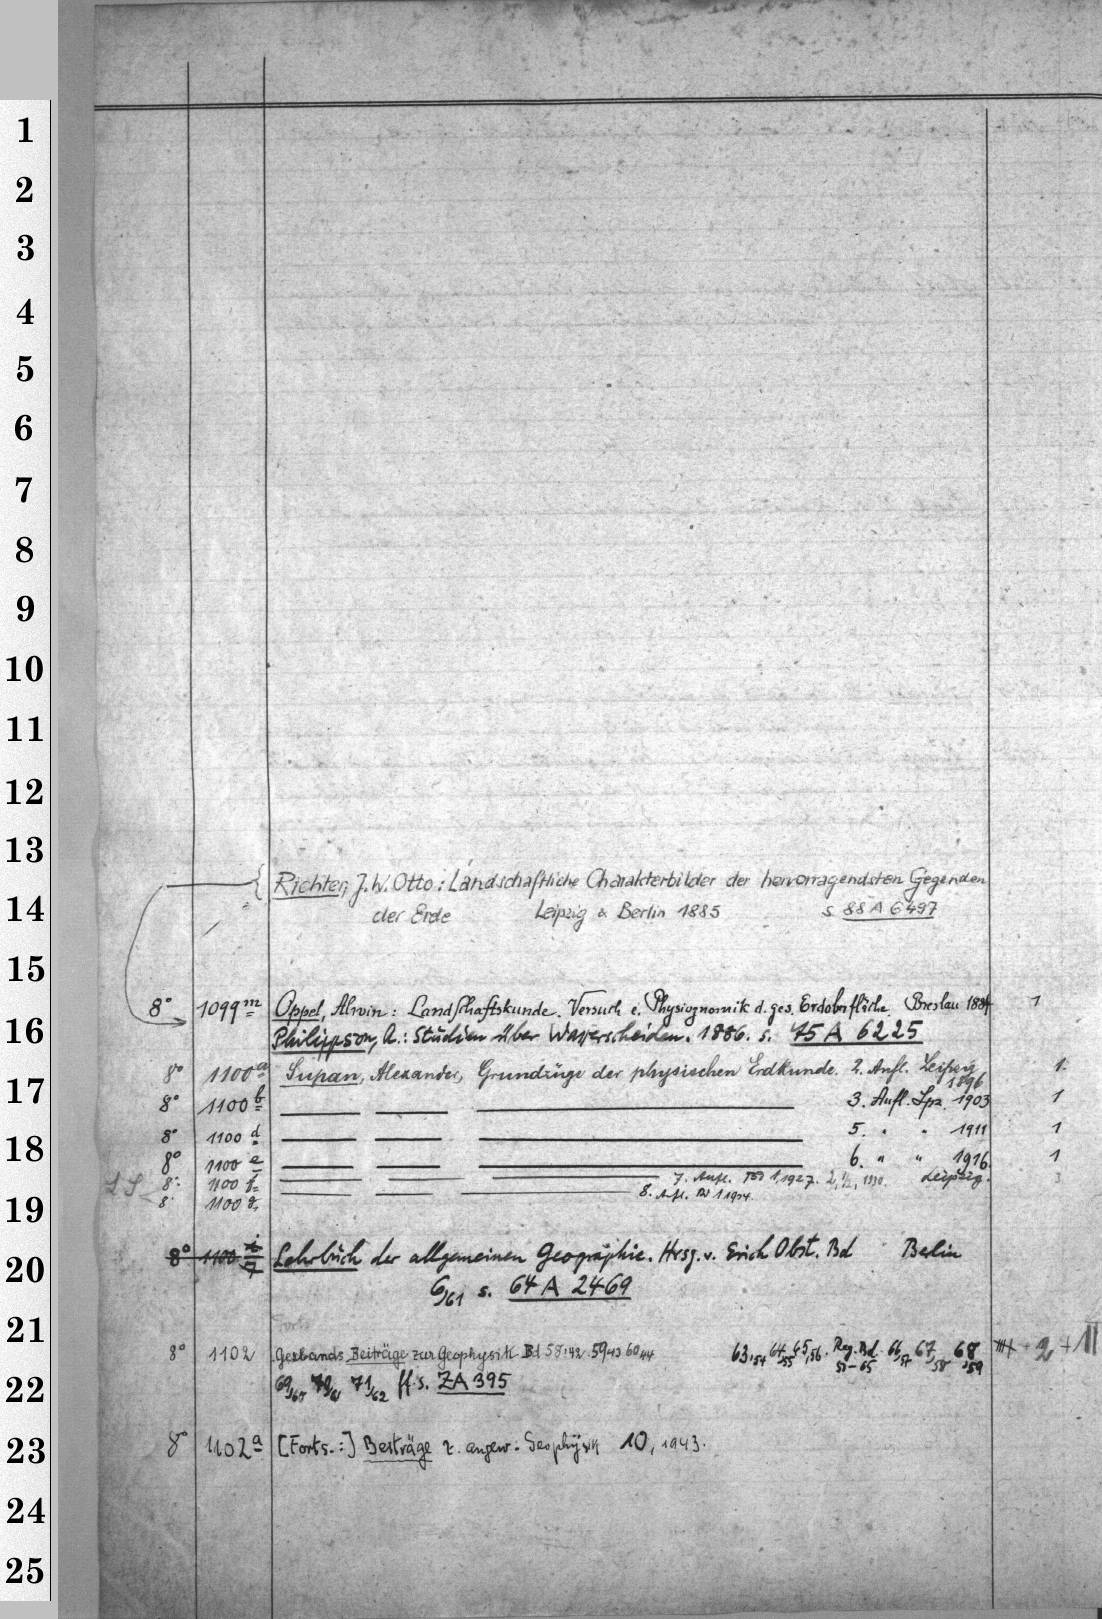 1
2
3
4
5
6
7
8
9
10
11
12
13
14
15
16
17
18
19
20
21
22
23
24
25
Richter, J. W. Otto: Landschaftliche Charakterbilder der hervorragendsten Gegenden
der Erde Leipzig & Berlin 1885 s. 88 A 6497
8° 1099 m Oppel, Alwin: Landschaftskunde. Versuch e. Physiognomik d. ges. Erdoberfläche. Breslau 1884 1
Philippson, A.: Studien über Wasserscheiden. 1886. s. 75 A 6225
8° 1100 a Supan, Alexander, Grundzüge der physischen Erdkunde. 2. Aufl. Leipzig 1896 1.
8° 1100 b 3. Aufl. Lpz. 1903 1
8° 1100 d 5. " " 1911 1
8° 1100 e 6. " " 1916. 1
LS 8° 1100 f 7. Aufl. Bd 1, 1927. 2, 1/2, 1930. Leipzig.
8° 1100 g. 8. Aufl. Bd 1 1934.
8° 1100 Lehrbuch der allgemeinen Geographie. Hrsg. v. Erich Obst. Bd Berlin
6/61 s. 64 A 2469
Forts
8° 1102 Gerlands Beiträge zur Geophysik Bd 58,42. 59,43 60,44 63,54 64,55 65,56. Reg. Bd. 51-65 66,57 67,58 68,59 + 2 + III
69/60 70/61 71/62 ff s. ZA 395
8° 1102 a [Forts.:] Beiträge z. angew. Geophysik 10, 1943.